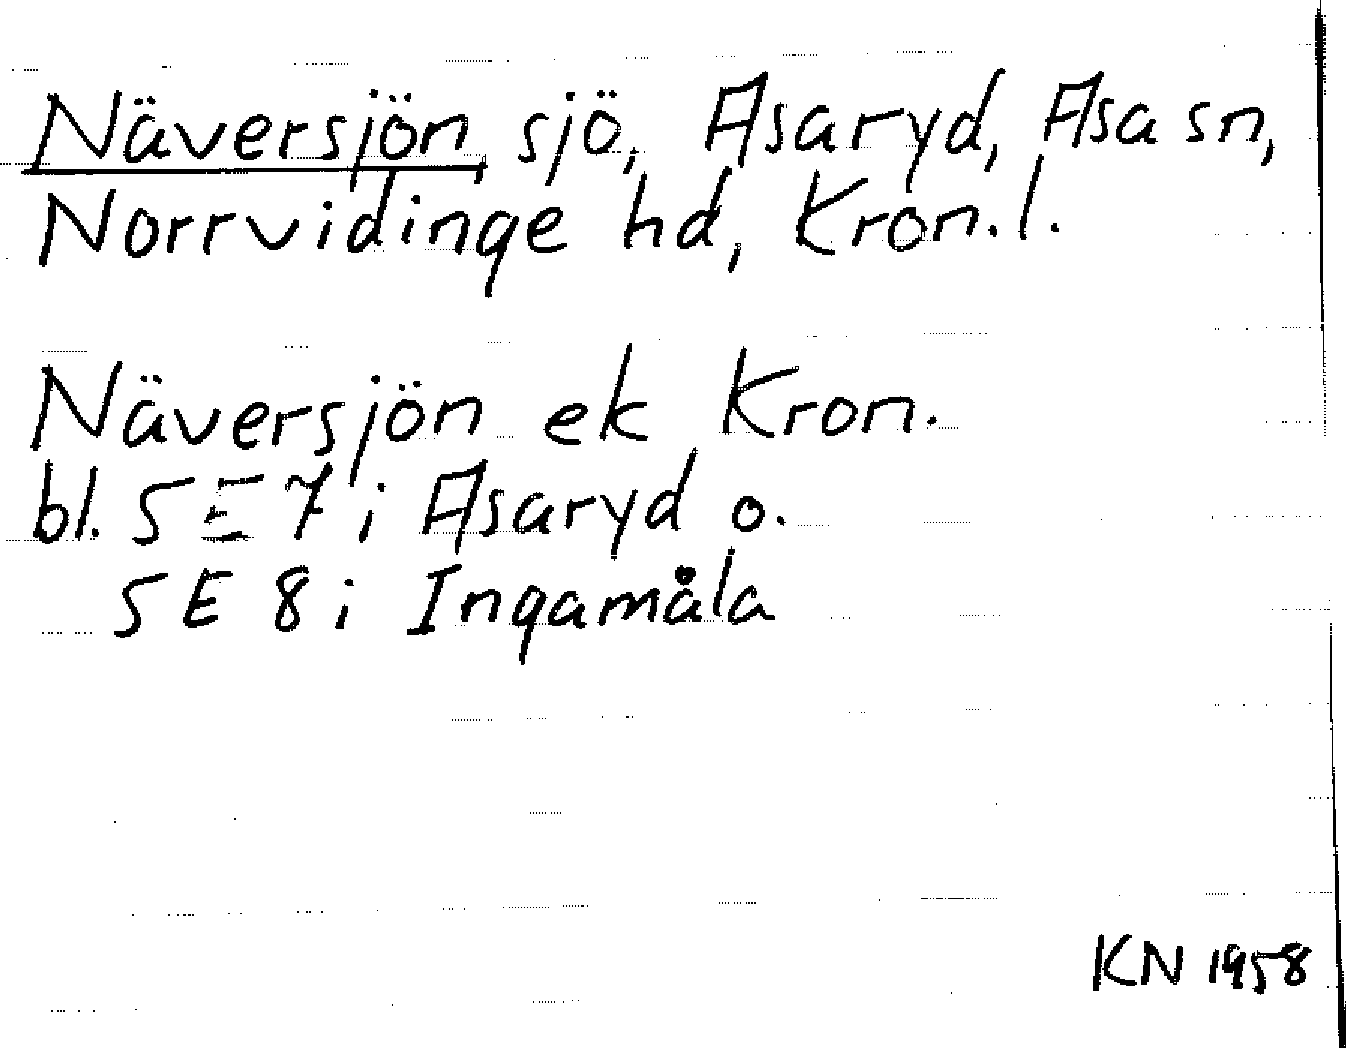 Näversjön, sjö, Asaryd, Asa sn,
Norrvidinge hd, Kron.l.
Näversjön ek Kron.
bl. 5E7 i Asaryd o.
5E8 i Ingamåla
KN 1958